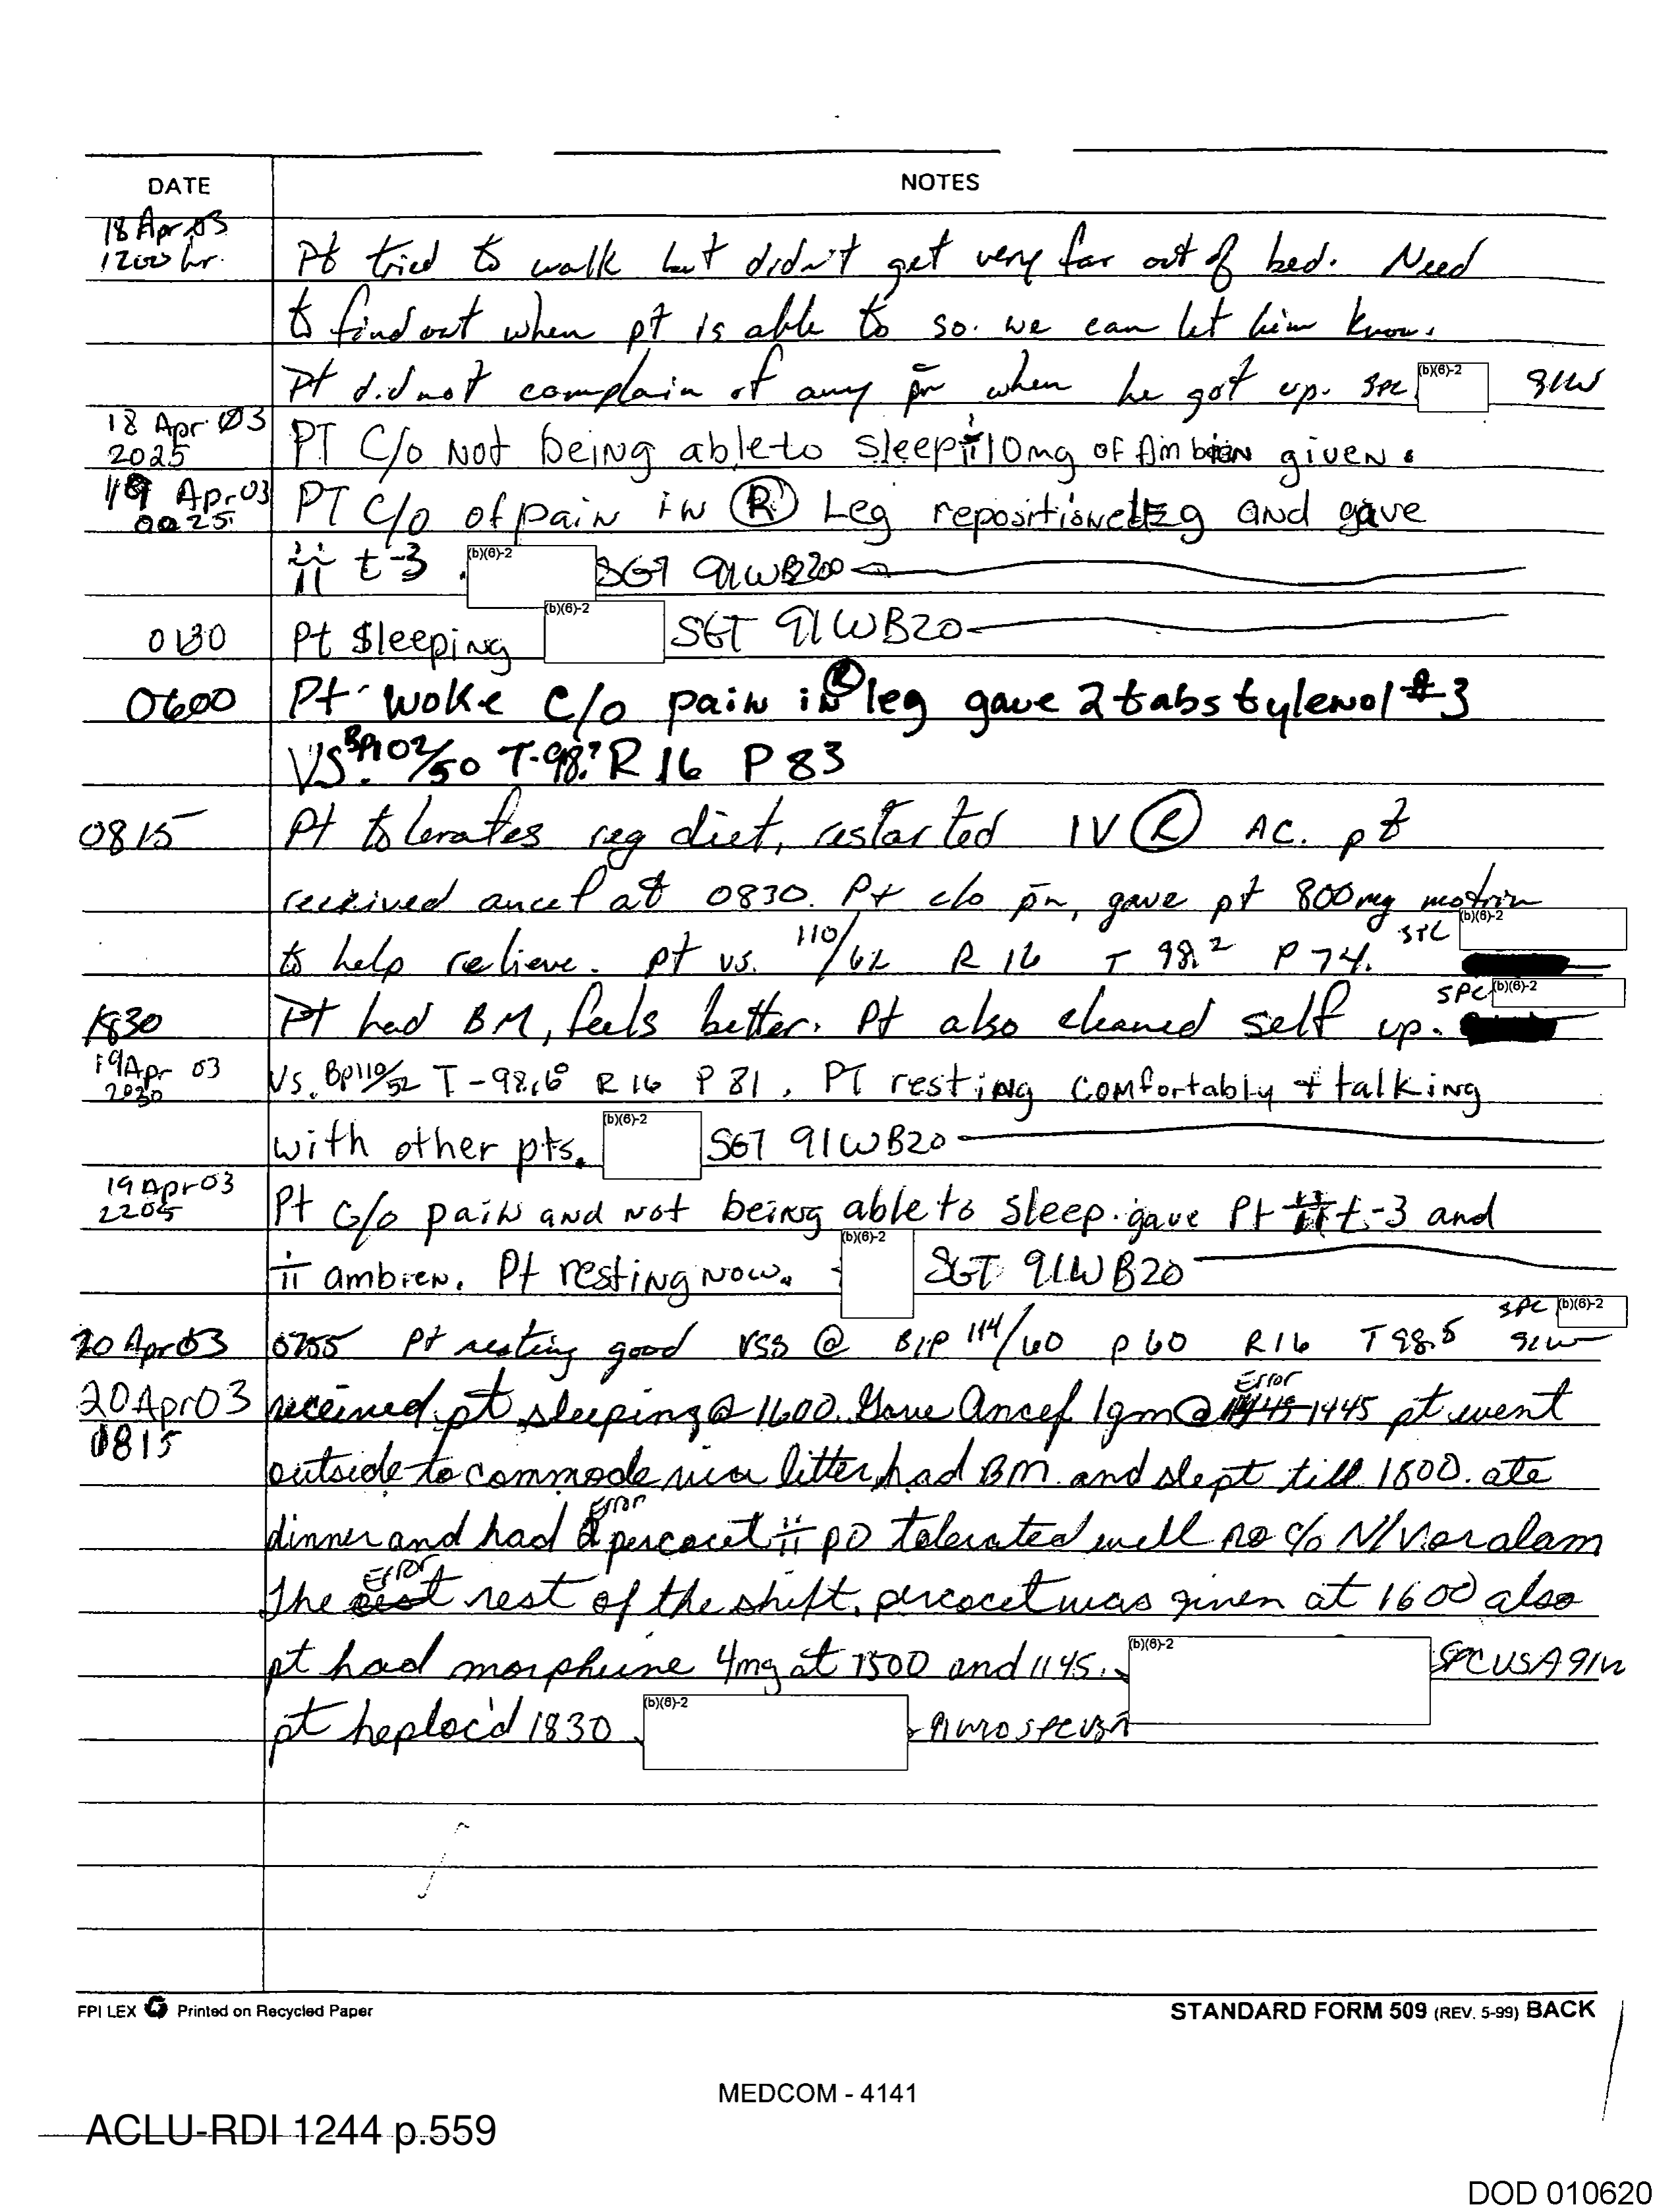 DATE NOTES
18 Apr 03
1200 hr. Pt tried to walk but didn't get very far out of bed. Need
to find out when pt is able to so we can let him know.
Pt did not complain of any pn when he got up. SPC (b)(6)-2 91W
18 Apr 03
2025 PT C/o Not being able to sleep 10mg of Ambien given.
19 Apr 03
0025 PT C/o of pain in (R) Leg repositioned leg and gave
ii t-3. (b)(6)-2 SGT 91WB20
0130 Pt Sleeping (b)(6)-2 SGT 91WB20
0600 Pt woke C/o pain in (R) leg gave 2 tabs tylenol #3
VS. BP 102/50 T-98.7 R 16 P 83
0815 Pt tolerates reg diet, restarted IV (R) AC. pt
received ancef at 0830. Pt c/o pn, gave pt 800mg motrin
to help relieve. pt vs. 110/62 R 16 T 98.2 P 74. SPC (b)(6)-2
1830 Pt had BM, feels better. Pt also cleaned self up. SPC (b)(6)-2
19 Apr 03
2030 Vs. Bp 110/52 T-98.6° R 16 P 81. PT resting comfortably + talking
with other pts. (b)(6)-2 SGT 91WB20
19 Apr 03
2205 Pt C/o pain and not being able to sleep. gave Pt ii t-3 and
ii ambien. Pt resting now. (b)(6)-2 SGT 91WB20
20 Apr 03 0755 Pt resting good VSS @ B/P 114/60 P 60 R 16 T 98.5 SPC (b)(6)-2 91W
20 Apr 03
0815 received pt sleeping @ 1600. Gave Ancef 1gm @ Error 1445 pt went
outside to commode via litter, had BM and slept till 1800. ate
dinner and had Error percocet ii po tolerated well no c/o N/V or alam
The Error rest of the shift. percocet was given at 1600 also
pt had morphine 4mg at 1500 and 1145. (b)(6)-2 SPC USA 91W
pt heploc'd 1830 (b)(6)-2
FPI LEX Printed on Recycled Paper STANDARD FORM 509 (REV. 5-99) BACK
MEDCOM - 4141
ACLU-RDI 1244 p.559
DOD 010620